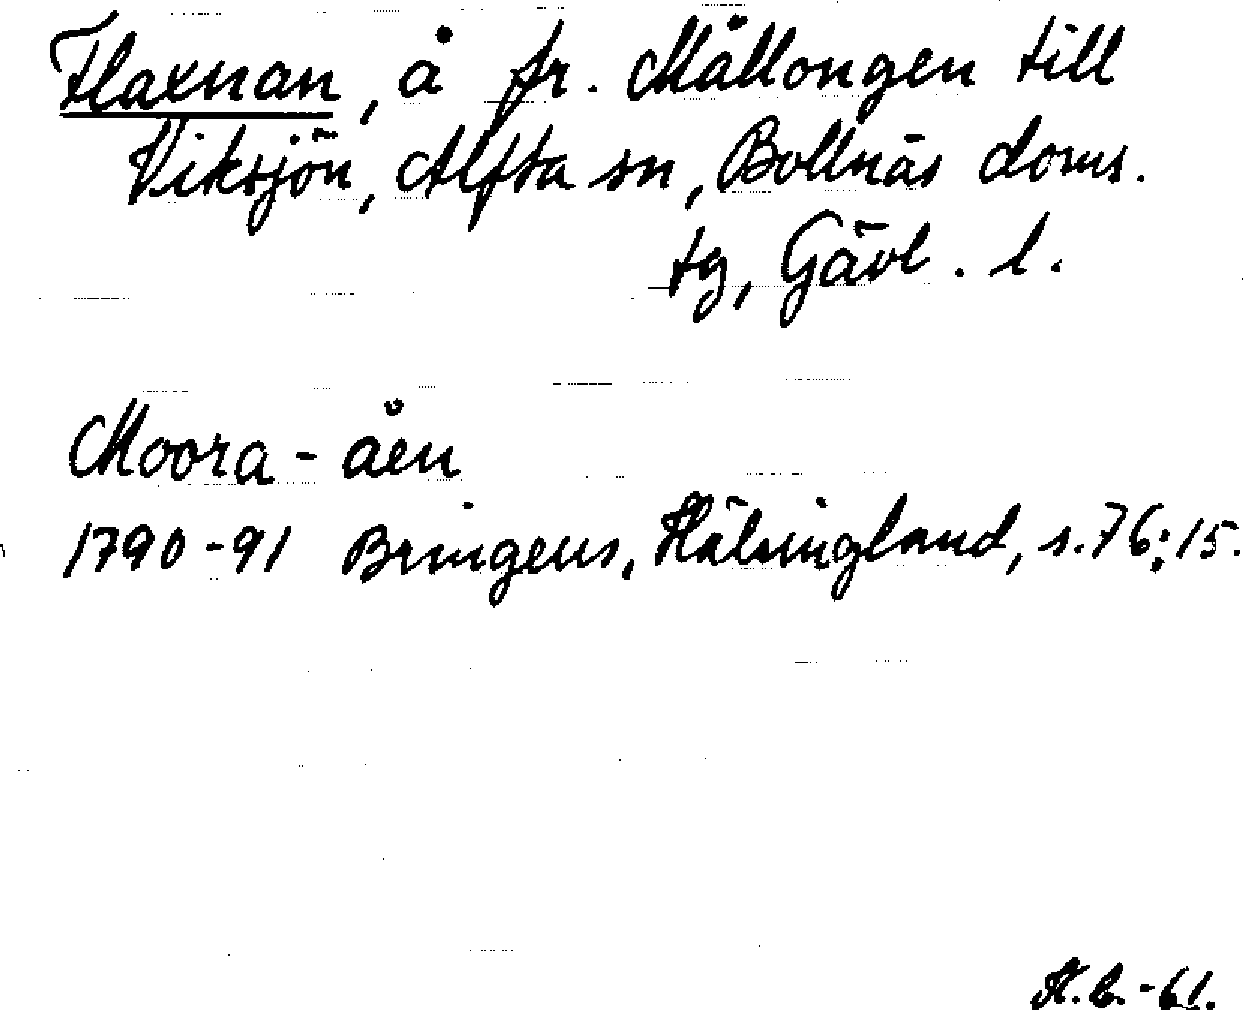 Flaxnan, å fr. Mållongen till
Viksjön, Alfta sn, Bollnäs doms.
tg, Gävl. l.
Moora-åen
1790-91 Bringeus, Hälsingland, s. 76:15.
-61.